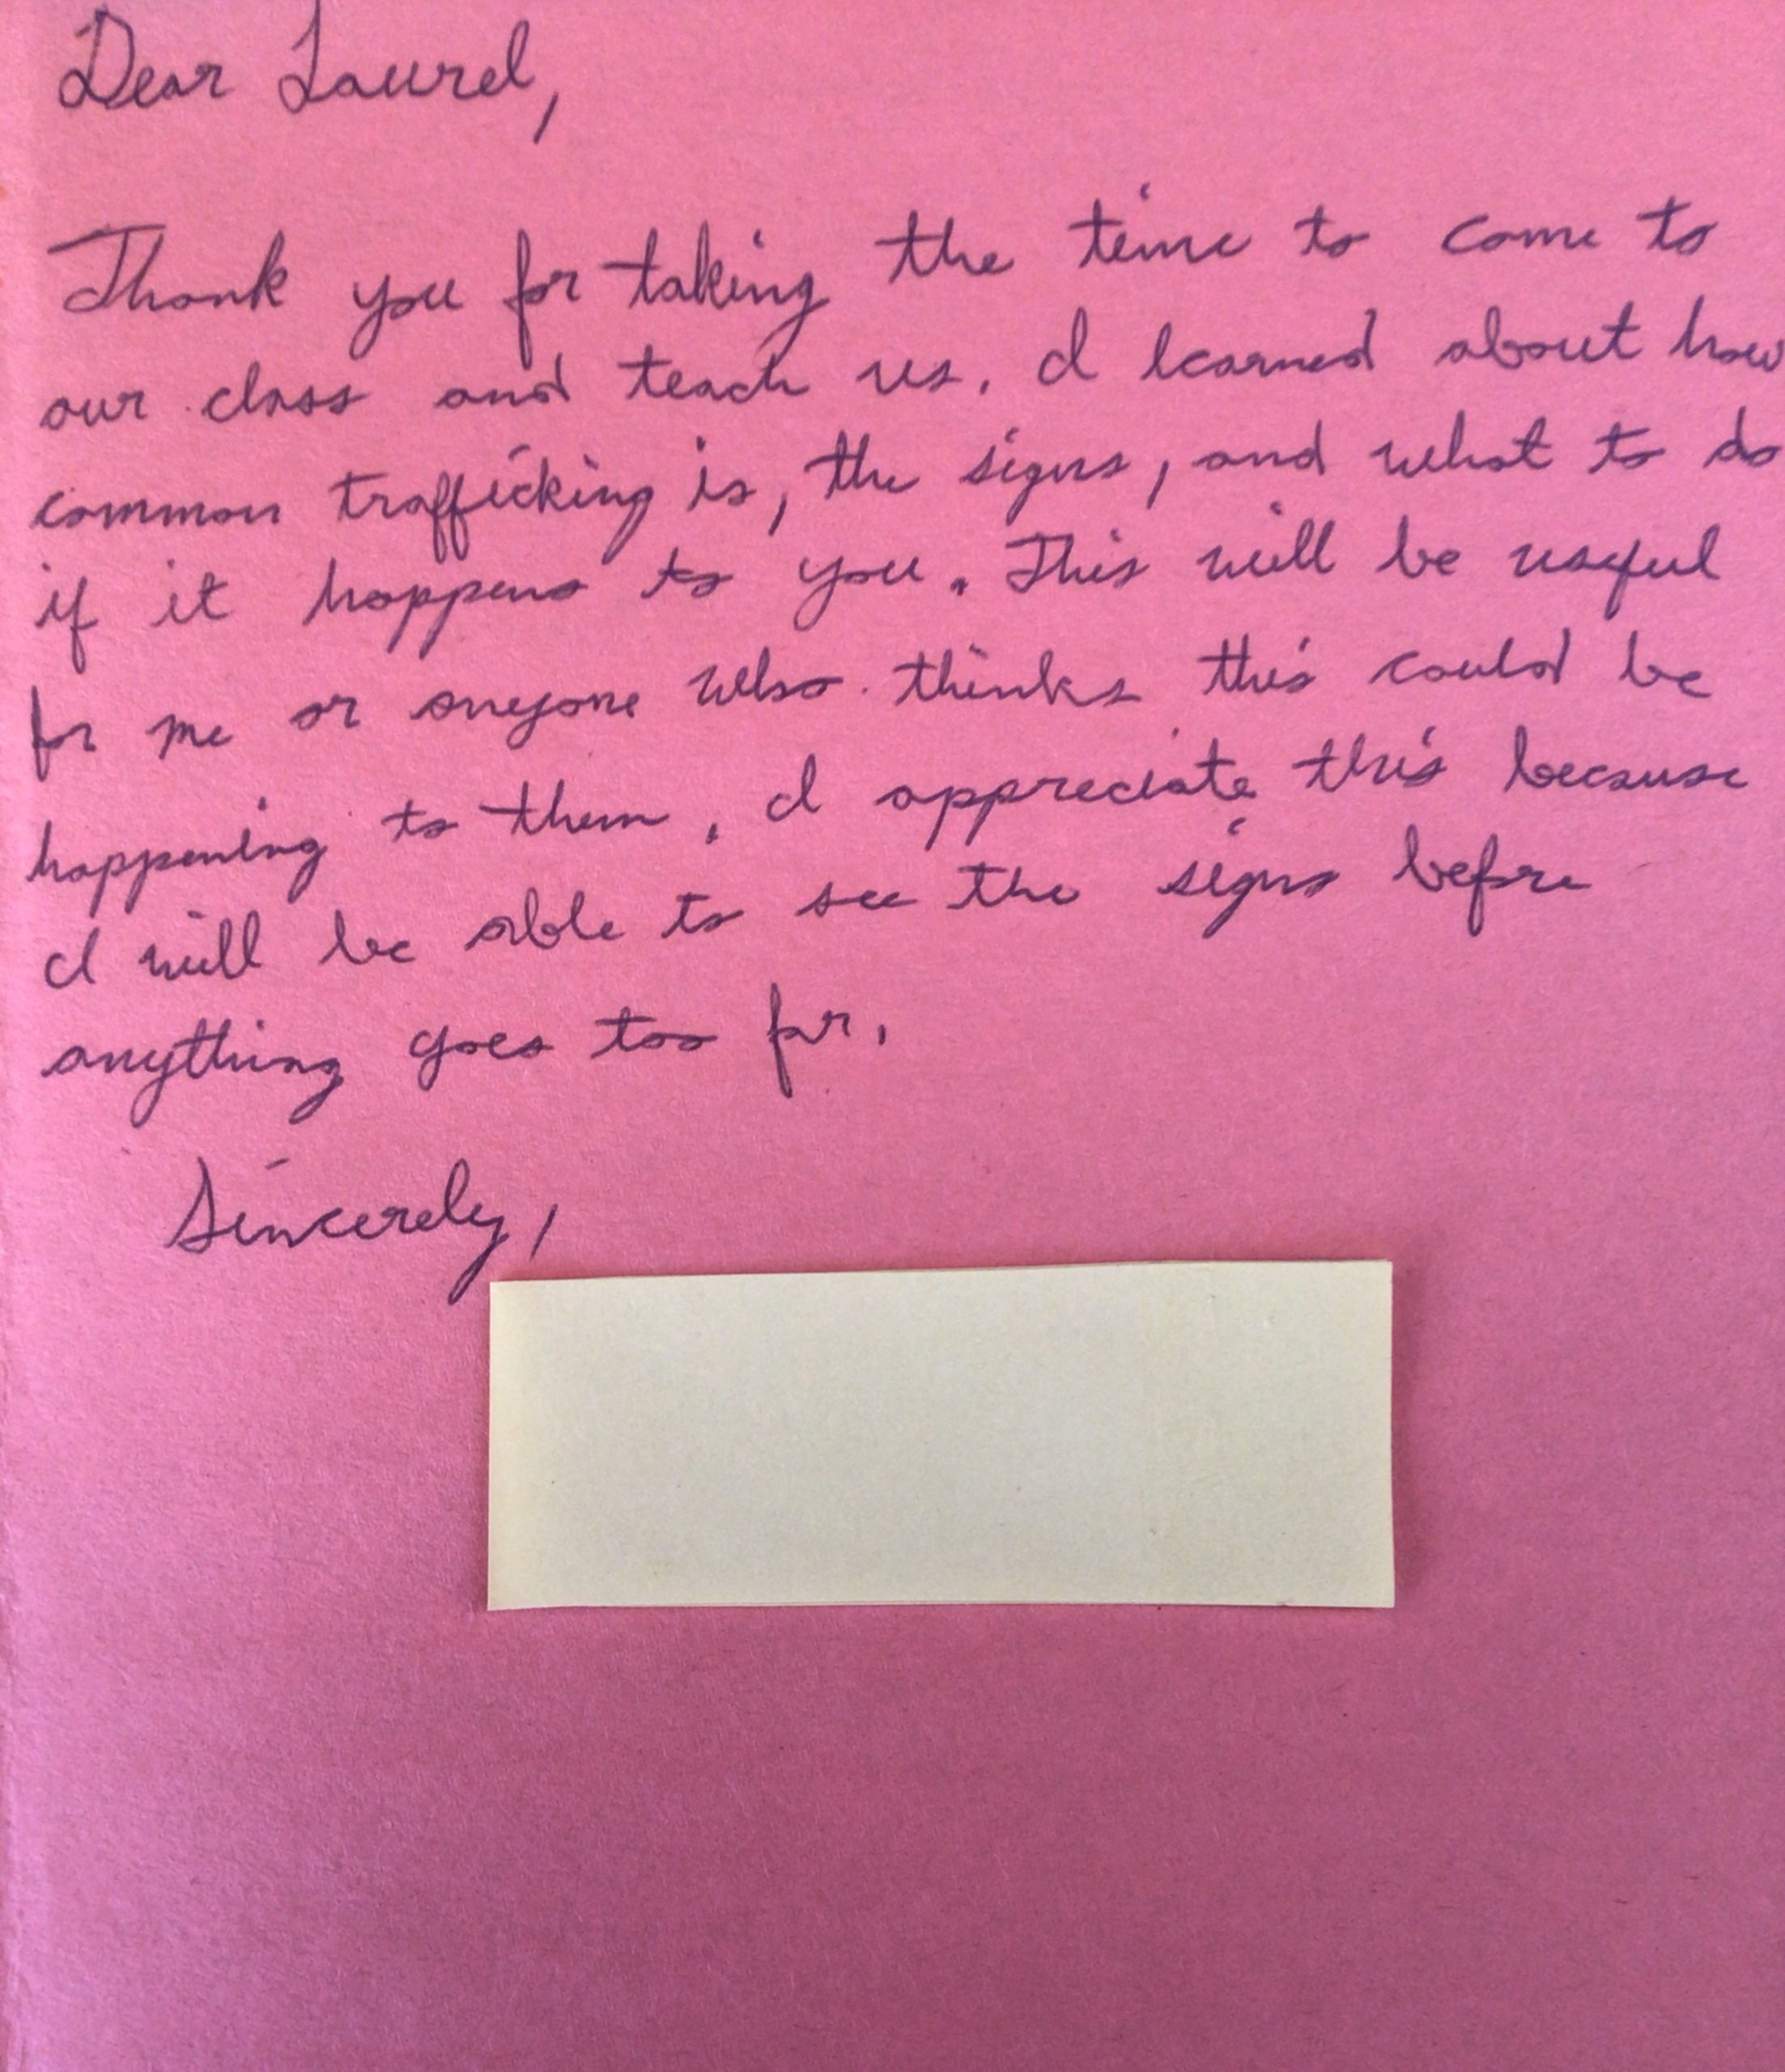 Dear Laurel,
Thank you for taking the time to come to
our class and teach us. I learned about how
common trafficking is, the signs, and what to do
if it happens to you. This will be useful
for me or anyone who thinks this could be
happening to them. I appreciate this because
I will be able to see the signs before
anything goes too far.
Sincerely,